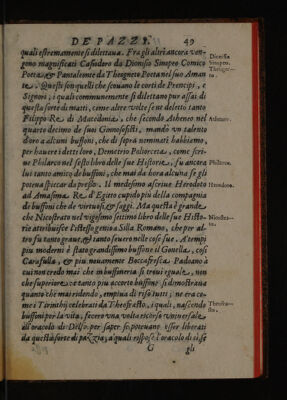 DE PAZZI. 49
quali estremamente si dilettaua. Fra gli altri ancora ven-
gono magnificati Cassodoro da Dionisio Sinopeo Comico
Poeta, & Pantaleonte da Theogneto Poeta nel suo Aman
te. Questi son quelli che scouano le corti de Prencipi, e
Signori, i quali communemente si dilettano pur assai di
questa sorte di matti, come altre volte s'è deletto tanto
Filippo Re di Macedonia, che secondo Atheneo nel
quarto decimo de suoi Ginnosofisti, mandò vn talento
d'oro a alcuni buffoni, che di sopra nominati habbiamo,
per hauere i detti loro; Demetrio Poliorceta, come scri-
ue Philarco nel sesto libro delle sue Historie, fu ancora
lui tanto amico de buffoni, che mai da hora alcuna se gli
potena spiccar da presso. Il medesimo ascriue Herodoto
ad Amasima Re d'Egitto cupido più della compagnia
di buffoni che de virtuosi, & saggi. Ma questa è grande
che Nicostrato nel vigesimo settimo libro delle sue Histo-
rie attribuisce l'istesso genio a Silla Romano, che per al-
tro fu tanto graue, & tanto seuero nelle cose sue. A tempi
più moderni è stato grandissimo buffone il Gonella, così
Carafulla, & più nouamente Boccafresca Padoano à
cui non credo mai che in buffoneria si troui eguale, non
che superiore & tanto più accorto buffone si dimostraua
quanto che mai ridendo, empiua di riso tutti; ne era co-
me i Tirinthij celebrati da Theofrasto, i quali, nascendo
buffoni per la vita, fecero vna volta ricorso vniuersale
all'oracolo di Delfo per saper se poteuano esser liberati
da questa sorte di pazzia, a quali rispose l'oracolo di sì se
G gli
Dionisio
Sinopeo.
Theogne-
to.
Atheneo.
Philarco.
Herodoto.
Nicostra-
to.
Theofra-
sto.